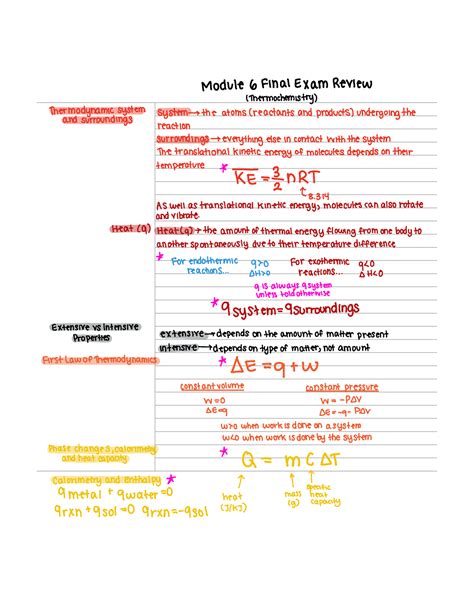 Module 6 Final Exam Review
(Thermochemistry)
Thermodynamic system
and surroundings
System → the atoms (reactants and products) undergoing the
reaction
Surroundings → everything else in contact with the system
The translational kinetic energy of molecules depends on their
temperature
* KE = 3/2 nRT
↳ 8.314
As well as translational kinetic energy, molecules can also rotate
and vibrate
Heat (q)
Heat(q) → the amount of thermal energy flowing from one body to
another spontaneously due to their temperature difference
* For endothermic q>0
reactions... ΔH>0
For exothermic q<0
reactions... ΔH<0
q is always q system
unless told otherwise
* q system = q surroundings
Extensive vs Intensive
Properties
extensive → depends on the amount of matter present
intensive → depends on type of matter, not amount
First Law of Thermodynamics
* ΔE = q + w
constant volume
W = 0
ΔE = q
constant pressure
W = -PΔV
ΔE = -q - PΔV
w>0 when work is done on a system
w<0 when work is done by the system
Phase changes, calorimetry
and heat capacity
* Q = m C ΔT
heat
(J/KJ)
mass
(g)
specific
heat
capacity
Calorimetry and enthalpy *
q metal + q water = 0
q rxn + q sol = 0 q rxn = -q sol